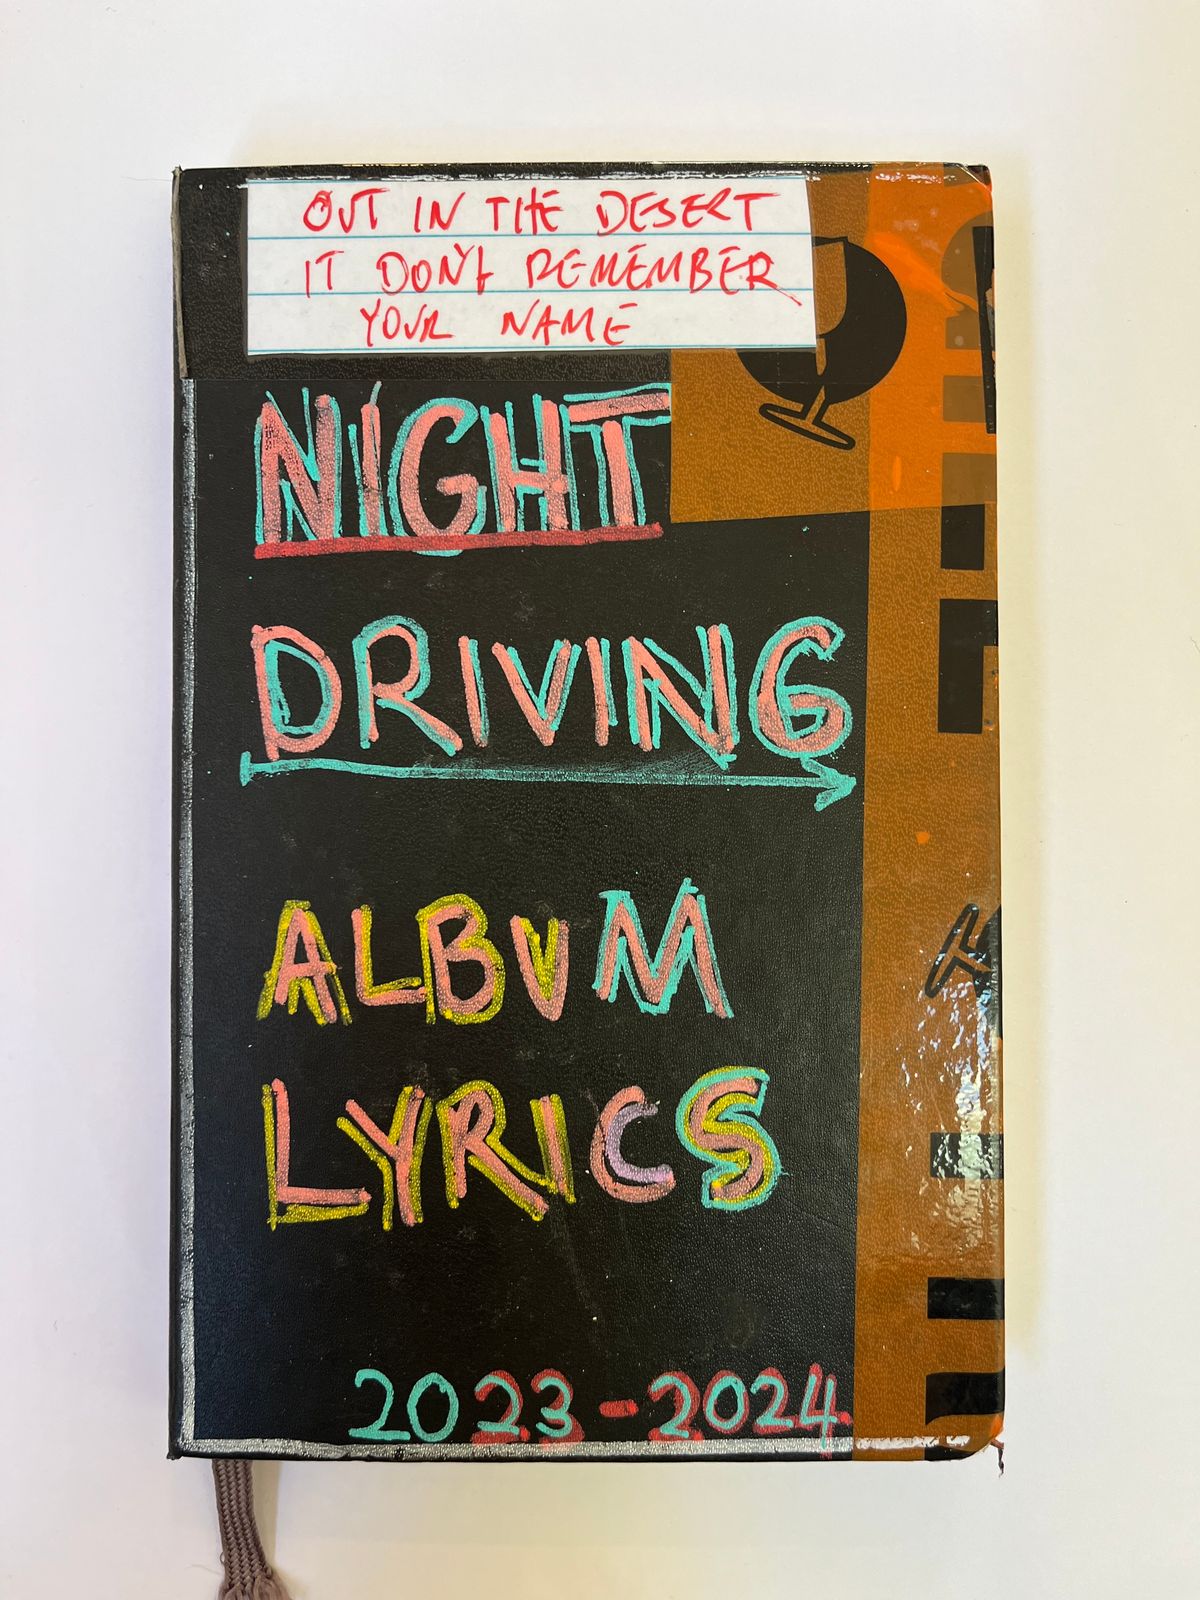 OUT IN THE DESERT
IT DON'T REMEMBER
YOUR NAME
NIGHT
DRIVING
ALBUM
LYRICS
2023-2024